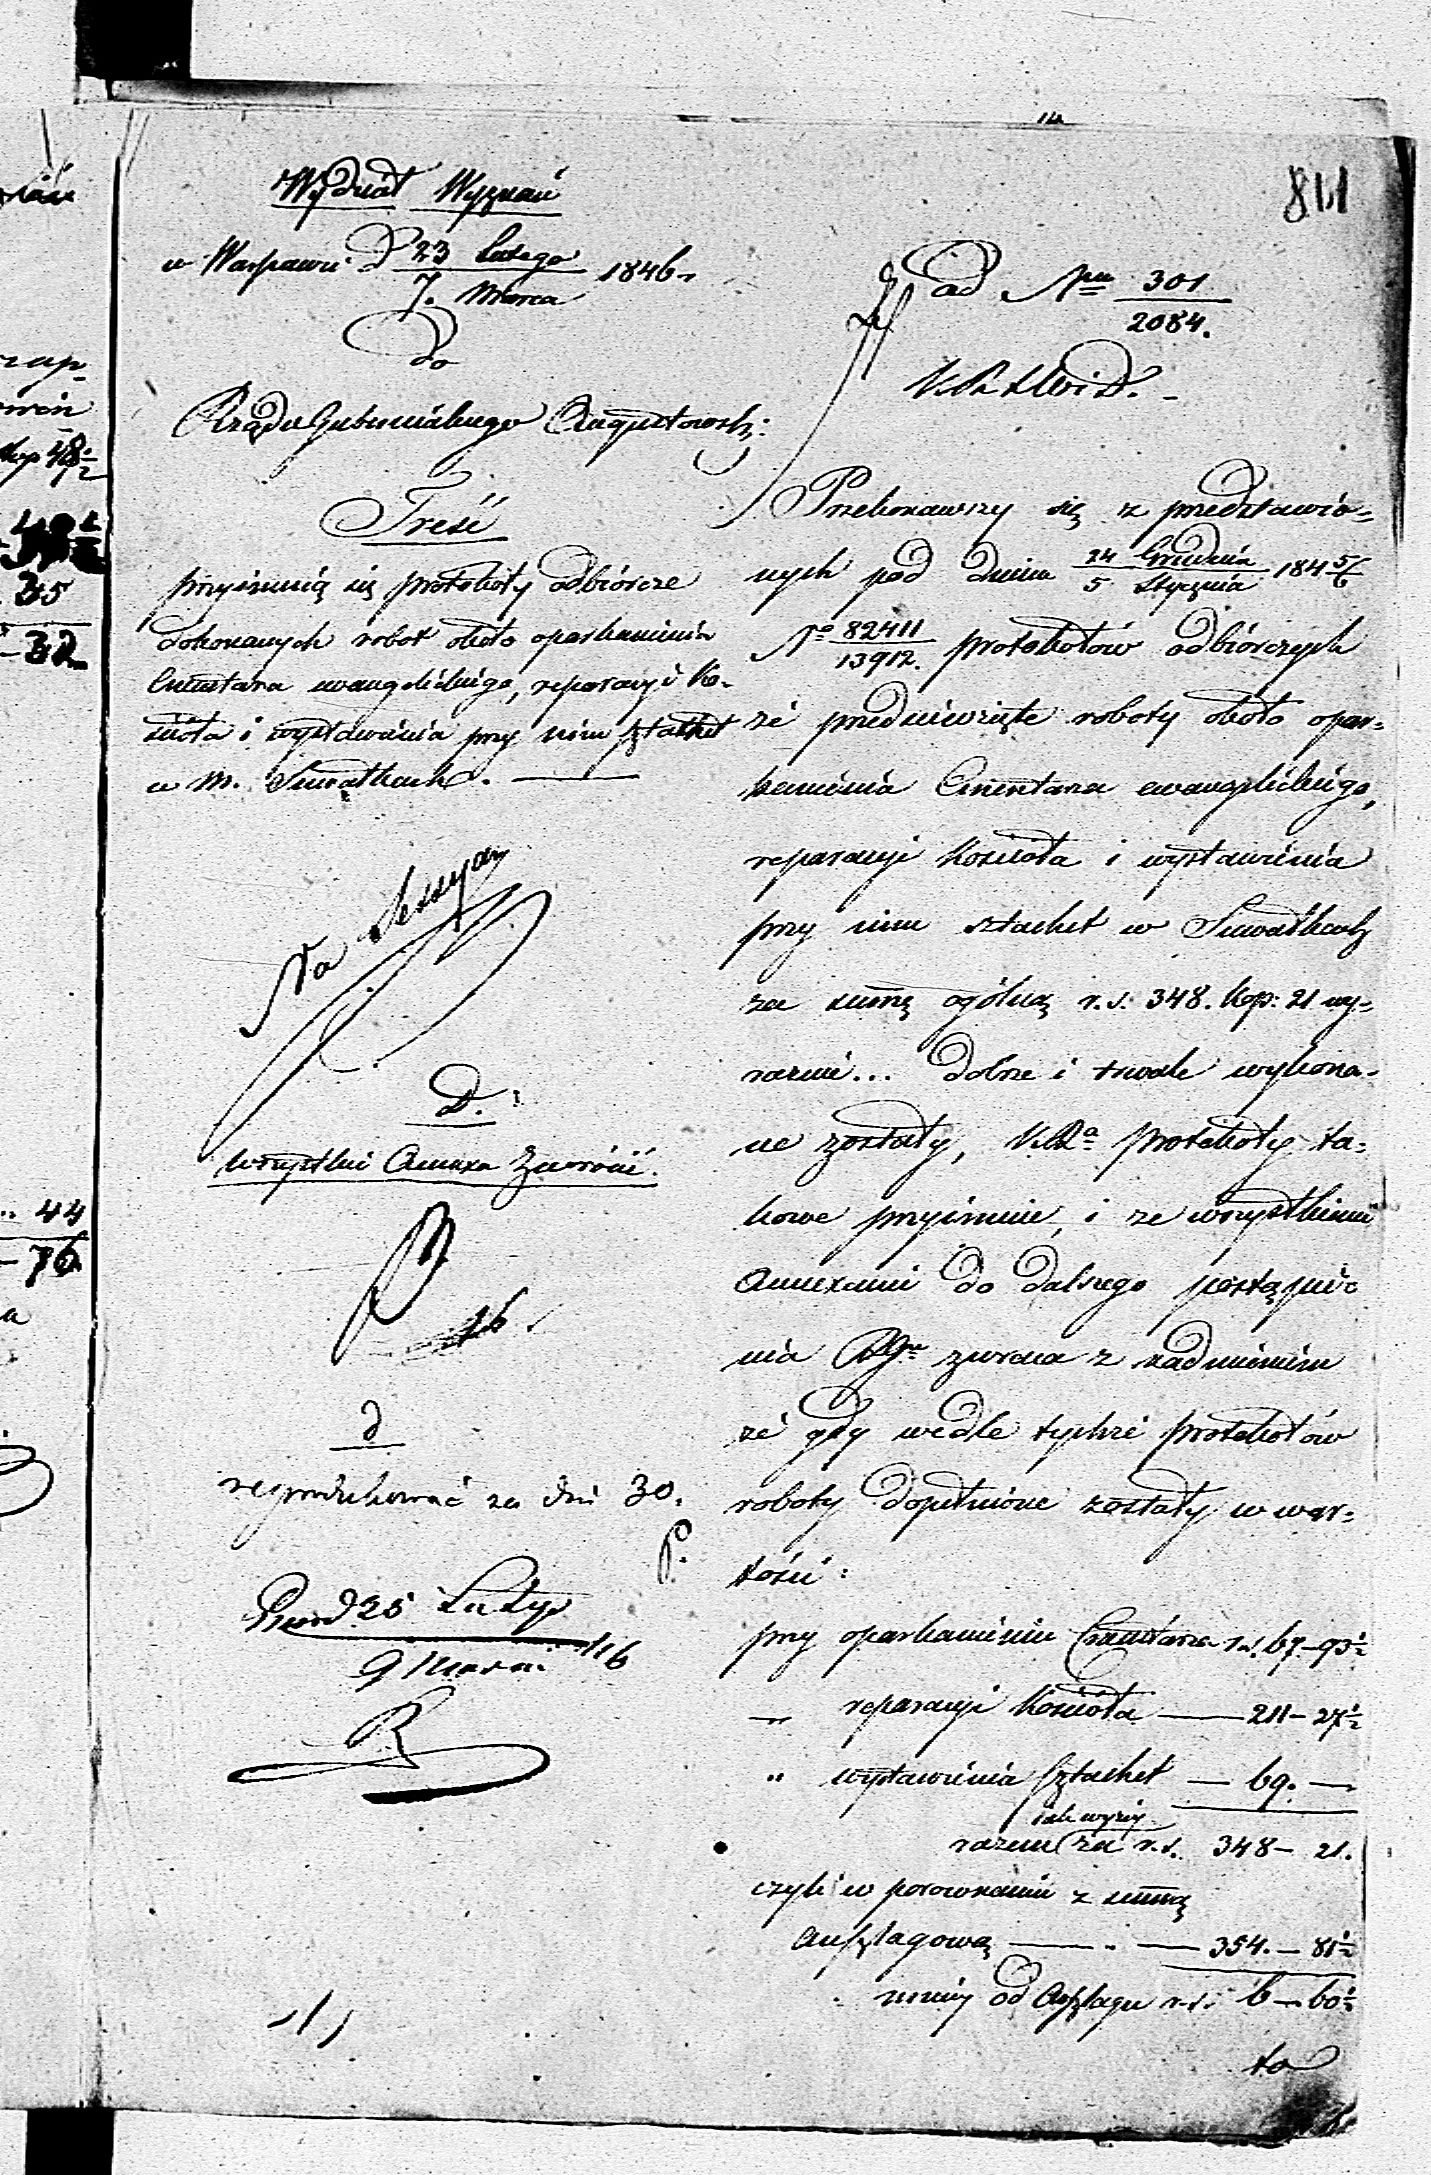 811
Wydział Wyznań
w Warszawie d. 23 Lutego / 7. Marca 1846 r.
Do
Rządu Gubernialnego Augustowsk:
Treść
przyimuią się protokoły odbiorcze
dokonanych robot około oparkanienia
Cmentarza ewangelickiego, reparacyi Ko-
ścioła i wystawienia przy nim sztachet
w M. Suwałkach.
Na Sessyą
D.:
wszystkie Annexa zwrócić.
46
d
reprodukować za dni 30.
P.
25 Lutego
9 Marca 46
R
ad Nru 301 / 2084.
K.R.S.W. i D.
Przekonawszy się z przedstawio-
nych pod dniem 24 Grudnia / 5 Stycznia 1845/6
No 82411 / 13912. protokołów odbiorczych
że przedsięwzięte roboty około opar-
kanienia Cmentarza ewangelickiego,
reparacyi Kościoła i wystawienia
przy nim sztachet w Suwałkach
za summę ogólną r.s. 348. kop: 21 wy-
raznie... dobrze i trwale wykona-
ne zostały, K.Ra protokoły ta-
kowe przyimuie, i ze wszystkiemi
Annexami do dalszego postąpie-
nia RGu zwraca z nadmieniem
że gdy wedle tychże protokołów
roboty dopełnione zostały w war-
tości:
przy oparkanieniu Cmentarza r.s. 67-93½
„ reparacyi Kościoła — 211-27½
„ wystawienia sztachet — 69. —
iak wyżey
razem za r.s. 348- 21.
czyli w porownaniu z summą
Anszlagową — „ — 354.- 81½
mniey od Anszlagu r.s. 6-60½
to